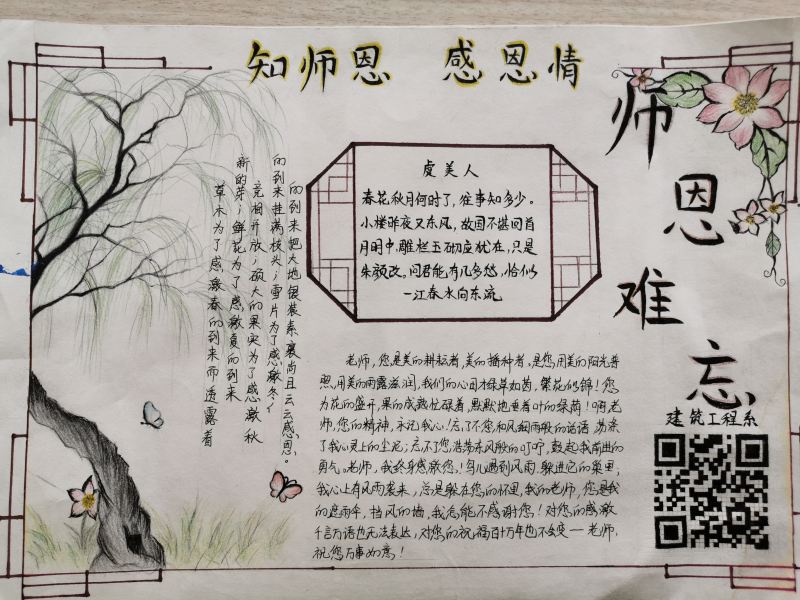 知师恩 感恩情
师恩难忘
虞美人
春花秋月何时了，往事知多少。
小楼昨夜又东风，故国不堪回首
月明中，雕栏玉砌应犹在，只是
朱颜改。问君能有几多愁，恰似
一江春水向东流
草木为了感激春的到来而透露着
新的芽；鲜花为了感激夏的到来
竞相开放；硕大的果实为了感激秋
的到来挂满枝头；雪片为了感激冬
的到来把大地银装素裹尚且云云感恩。
老师，您是美的耕耘者，美的播种者。是您用美的阳光普
照，用美的雨露滋润，我们的心田才绿草如茵，繁花似锦！您
为花的盛开，果的成熟忙碌着，默默地垂着叶的绿荫！啊，老
师，您的精神，永记我心！忘了不您和风细雨般的话语，荡涤
了我心灵上的尘泥；忘不了您浩荡东风般的叮咛，鼓起我前进的
勇气。老师，我终身感激您！鸟儿遇到风雨，躲进它的巢里；
我心上有风雨袭来，总是躲在您的怀里，我的老师，您是我
的遮雨伞，挡风的墙，我怎能不感谢您！对您的感激
千言万语也无法表达，对您的祝福百十万年也不会变一老师，
祝您万事如意！
建筑工程系